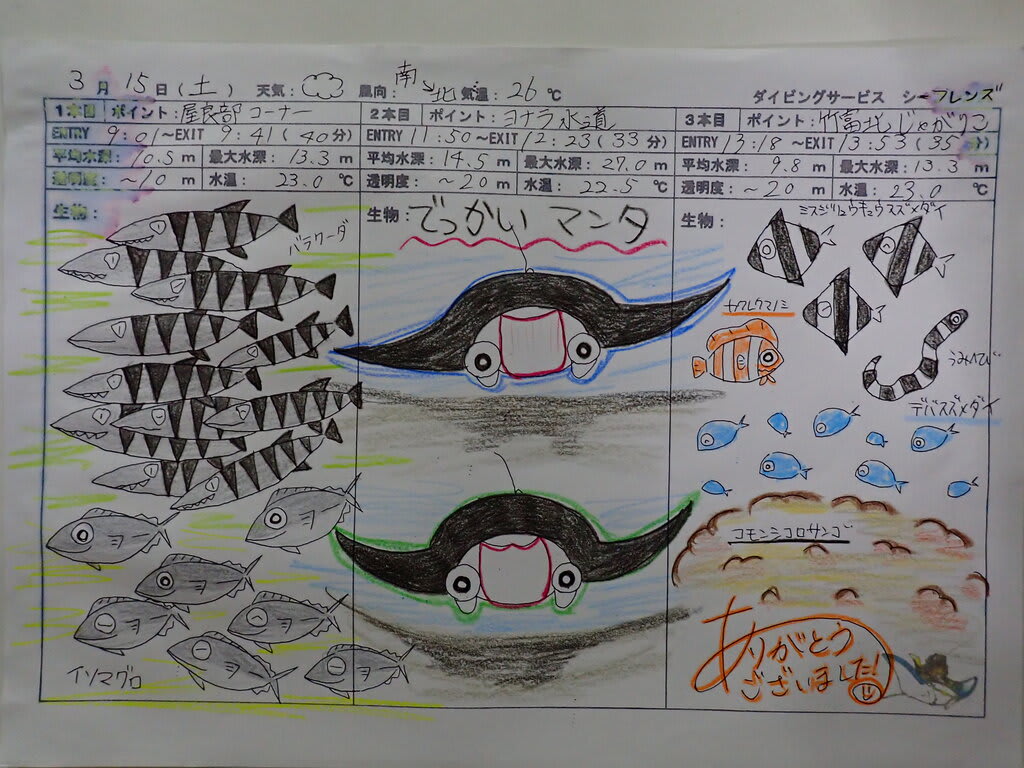 3月15日(土) 天気: 風向:南→北 気温:26℃
ダイビングサービス シーフレンズ
1本目 ポイント:屋良部コーナー
ENTRY 9:01~EXIT 9:41(40分)
平均水深:10.5m 最大水深:13.3m
透明度:~10m 水温:23.0℃
生物:
バラクーダ
イソマグロ
2本目 ポイント:ヨナラ水道
ENTRY 11:50~EXIT 12:23(33分)
平均水深:14.5m 最大水深:27.0m
透明度:~20m 水温:22.5℃
生物:でっかい マンタ
3本目 ポイント:竹富北じゃがりこ
ENTRY 13:18~EXIT 13:53(35分)
平均水深:9.8m 最大水深:13.3m
透明度:~20m 水温:23.0℃
生物:
ミスジリュウキュウスズメダイ
ヤクレクマノミ
うみへび
デバスズメダイ
コモンシコロサンゴ
ありがとう
ございました!